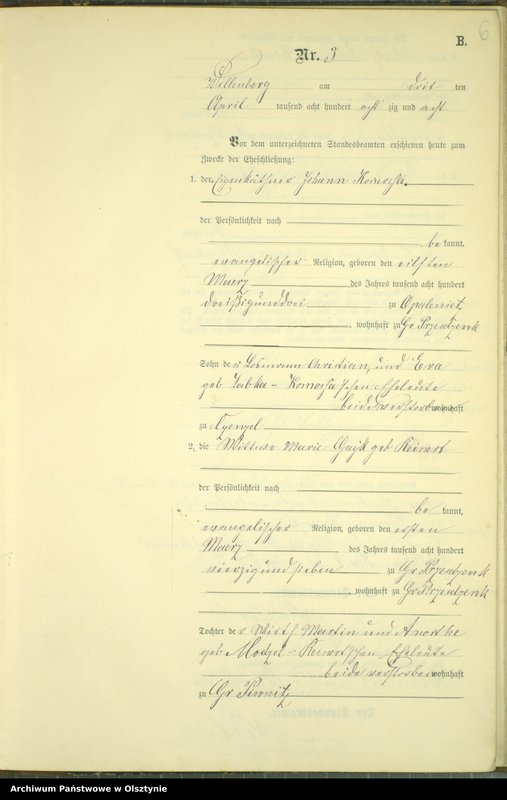 6
B.
Nr. 3
Willenberg am drit ten
April tausend acht hundert acht zig und acht
Vor dem unterzeichneten Standesbeamten erschienen heute zum
Zwecke der Eheschließung:
1. der Eigenkäthner Johann Komossa
der Persönlichkeit nach
be kannt,
evangelischer Religion, geboren den eilften
Maerz des Jahres tausend acht hundert
dreißigunddrei zu Opaleniez
, wohnhaft zu Gr Przesdzenk
Sohn des Losmann Christian, und Eva
geb - Komossa'schen Eheleute
beide verstorben wohnhaft
zu
2. die Wittwe Marie geb Keiwert
der Persönlichkeit nach
be kannt,
evangelischer Religion, geboren den ersten
Maerz des Jahres tausend acht hundert
vierzigundsieben zu Gr Przesdzenk
, wohnhaft zu Gr Przesdzenk
Tochter des Wirth Martin und
geb - Keiwert'schen Eheleute
beide verstorben wohnhaft
zu Gr Piwnitz
Archiwum Państwowe w Olsztynie